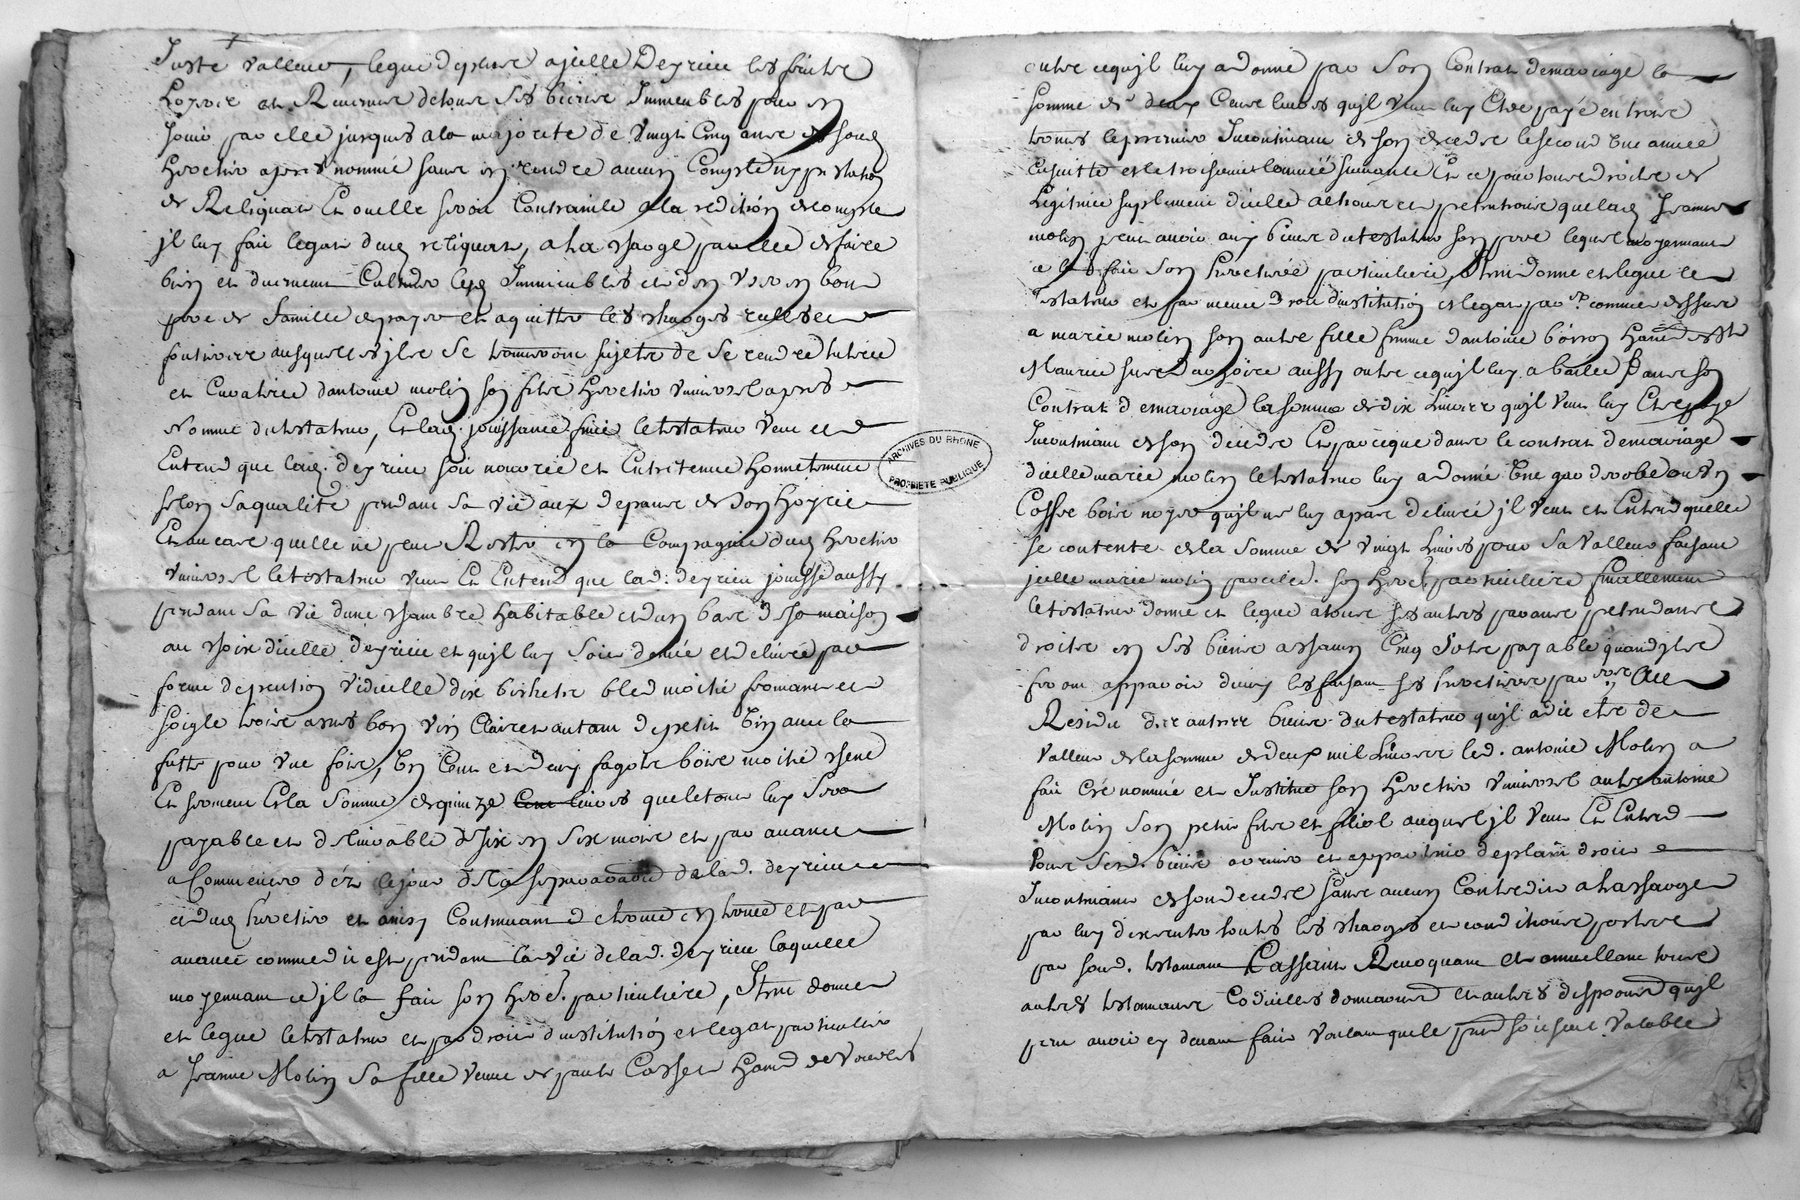 Juste valleur, legue deplus a jcelle Deyrieu les fruits
et Revenus de tous ses biens Immeubles pour en
Jouir par elle jusques a la majorité de vingt cinq ans de sond
heretier apres nommé sans en rendre aucun Compte ny prestation
de Reliquat Et ou elle seroit Contrainte a la redition de compte
jl luy fait legat dud reliquat, a la charge par elle de faire
bien et duement Cultiver lesd Immeubles et d'en user en bon
pere de famille de payer et aquitter les charges
ausquelles jls se trouveront sujets de se rendre tutrice
et Curatrice d'antoine molin son fils heretier universel apres
Nommé du testateur, Et lad. jouissance finie le testateur veut et
Entend que lad. deyrieu soit nourrie et Entretenue honnetement
selon sa qualité pendant sa vie aux depans de son hoyrie
Et au cas quelle ne peut Rester en la Compagnie dud heretier
universel le testateur veut Et Entend que lad. deyrieu jouisse aussy
pendant sa vie d'une chambre habitable et d'un bas de sa maison
au choix d'icelle deyrieu et qu'jl luy soit donné et delivré par
forme de pention viduelle dix bichets bled moitié froment et
soigle trois asnés bon vin Clairet autant de petit vin avec la
futte pour une fois, Un Cent et demy fagots bois moitié chene
Et Et la Somme de quinze livres que le tout luy sera
payable et delivrable de six en six mois et par avance
a Commencer dez le jour de la separation de lad. deyrieu
et dud heretier et ainsy Continuant de terme en terme et par
avance comme dit est pendant la vie de lad. deyrieu laquelle
moyennant ce jl la fait son hered. particuliere, Item donne
et legue le testateur et par droit d'institution et legat particullier
a Jeanne Molin sa fille veuve de paule Cosset hand de vourles
outre ce qu'jl luy a donné par son Contrat de mariage la
somme de deux Cens livres qu'jl veut luy Etre payé en trois
termes le premier Incontinant de son decede le second Une année
Ensuitte et le troisieme l'année suivante Et ce pour tous droits de
Legitime suplement d'icelle actions et pretentions que lad Jeanne
molin peut avoir aux biens du testateur son pere lequel moyennant
ce la fait son heretiere particuliere, Item donne et legue le
testateur et par meme droit d'institution et legat par comme dessus
a marie molin son autre fille femme d'antoine
Maurice sur aussy outre ce qu'jl luy a baillé Dans son
Contrat de mariage la somme de dix Livres qu'jl veut luy Etre payé
Incontinant de son decede Et parceque dans le contrat de mariage
d'icelle marie molin le testateur luy a donné Une garderobe ou Un
Coffre bois noyer qu'jl ne luy a pas delivré jl Veut et Entend quelle
se contente de la somme de vingt Livres pour sa valleur faisant
jcelle marie molin son hered. particuliere finallement
le testateur donne et legue a tous ses autres parans pretendans
droits en ses biens a chacun Cinq sols payable quand jls
feront apparoir d'iceux les faisant ses heretiers par Au
Residu des autres biens du testateur qu'jl a dit etre de
valleur de la somme de deux mil Livres led. antoine Molin a
fait Créé nommé et Institué son heretier universel autre antoine
Molin son petit fils et filiol auquel jl Veut Et Entend
tous sesd. biens arriver et appartenir de plain droit
Incontinant de son decede sans aucun Contredit a la charge
par luy d'executer touts les charges et conditions portées
par sond. testament Cassant Revoquant et annullant tous
autres testamens Codicilles donnations et autres dispositions qu'jl
peut avoir cy devant fait voulant que le present soit seul valable